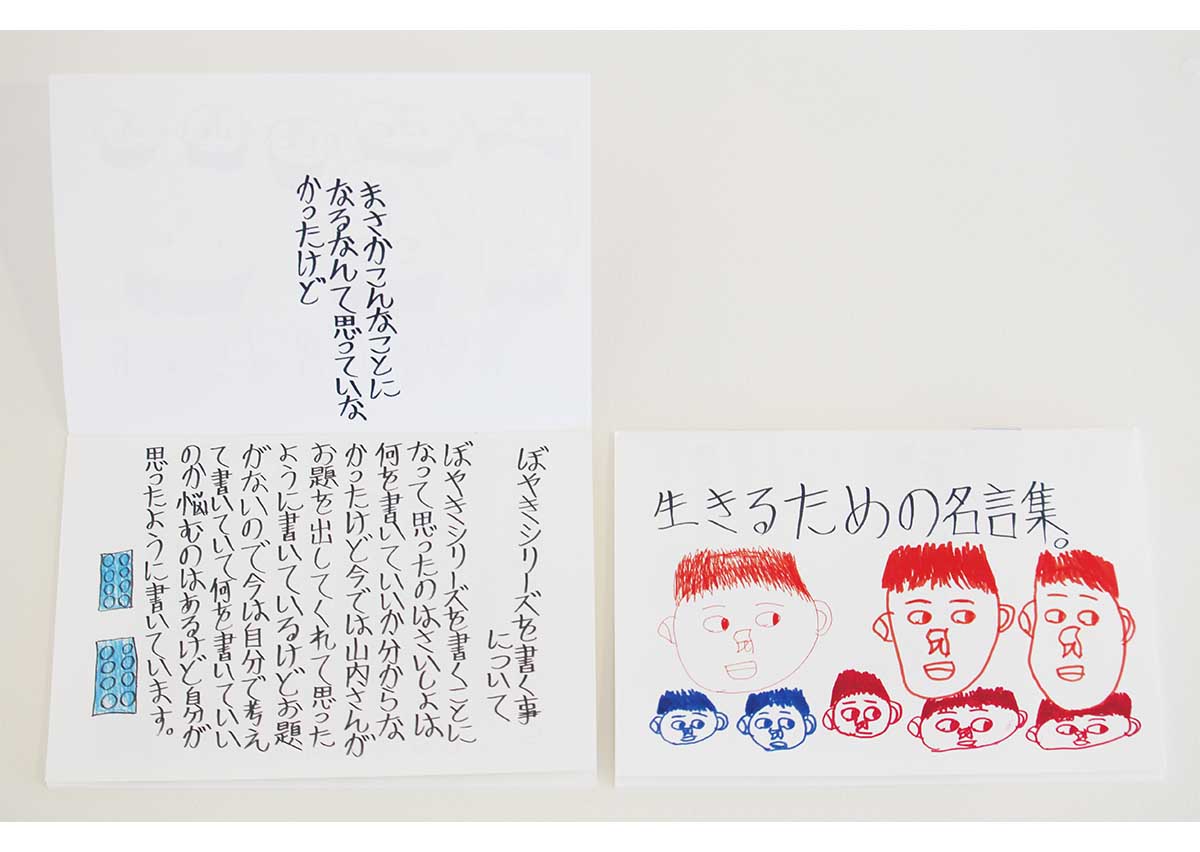 まさかこんなことに
なるなんて思っていな
かったけど
ぼやきシリーズを書く事
について
ぼやきシリーズを書くことに
なって思ったのはさいしょは
何を書いていいか分からな
かったけど今では山内さんが
お題を出してくれて思った
ように書いているけどお題
がないので今は自分で考え
て書いていて何を書いていい
のか悩むのはあるけど自分が
思ったように書いています。
生きるための名言集。